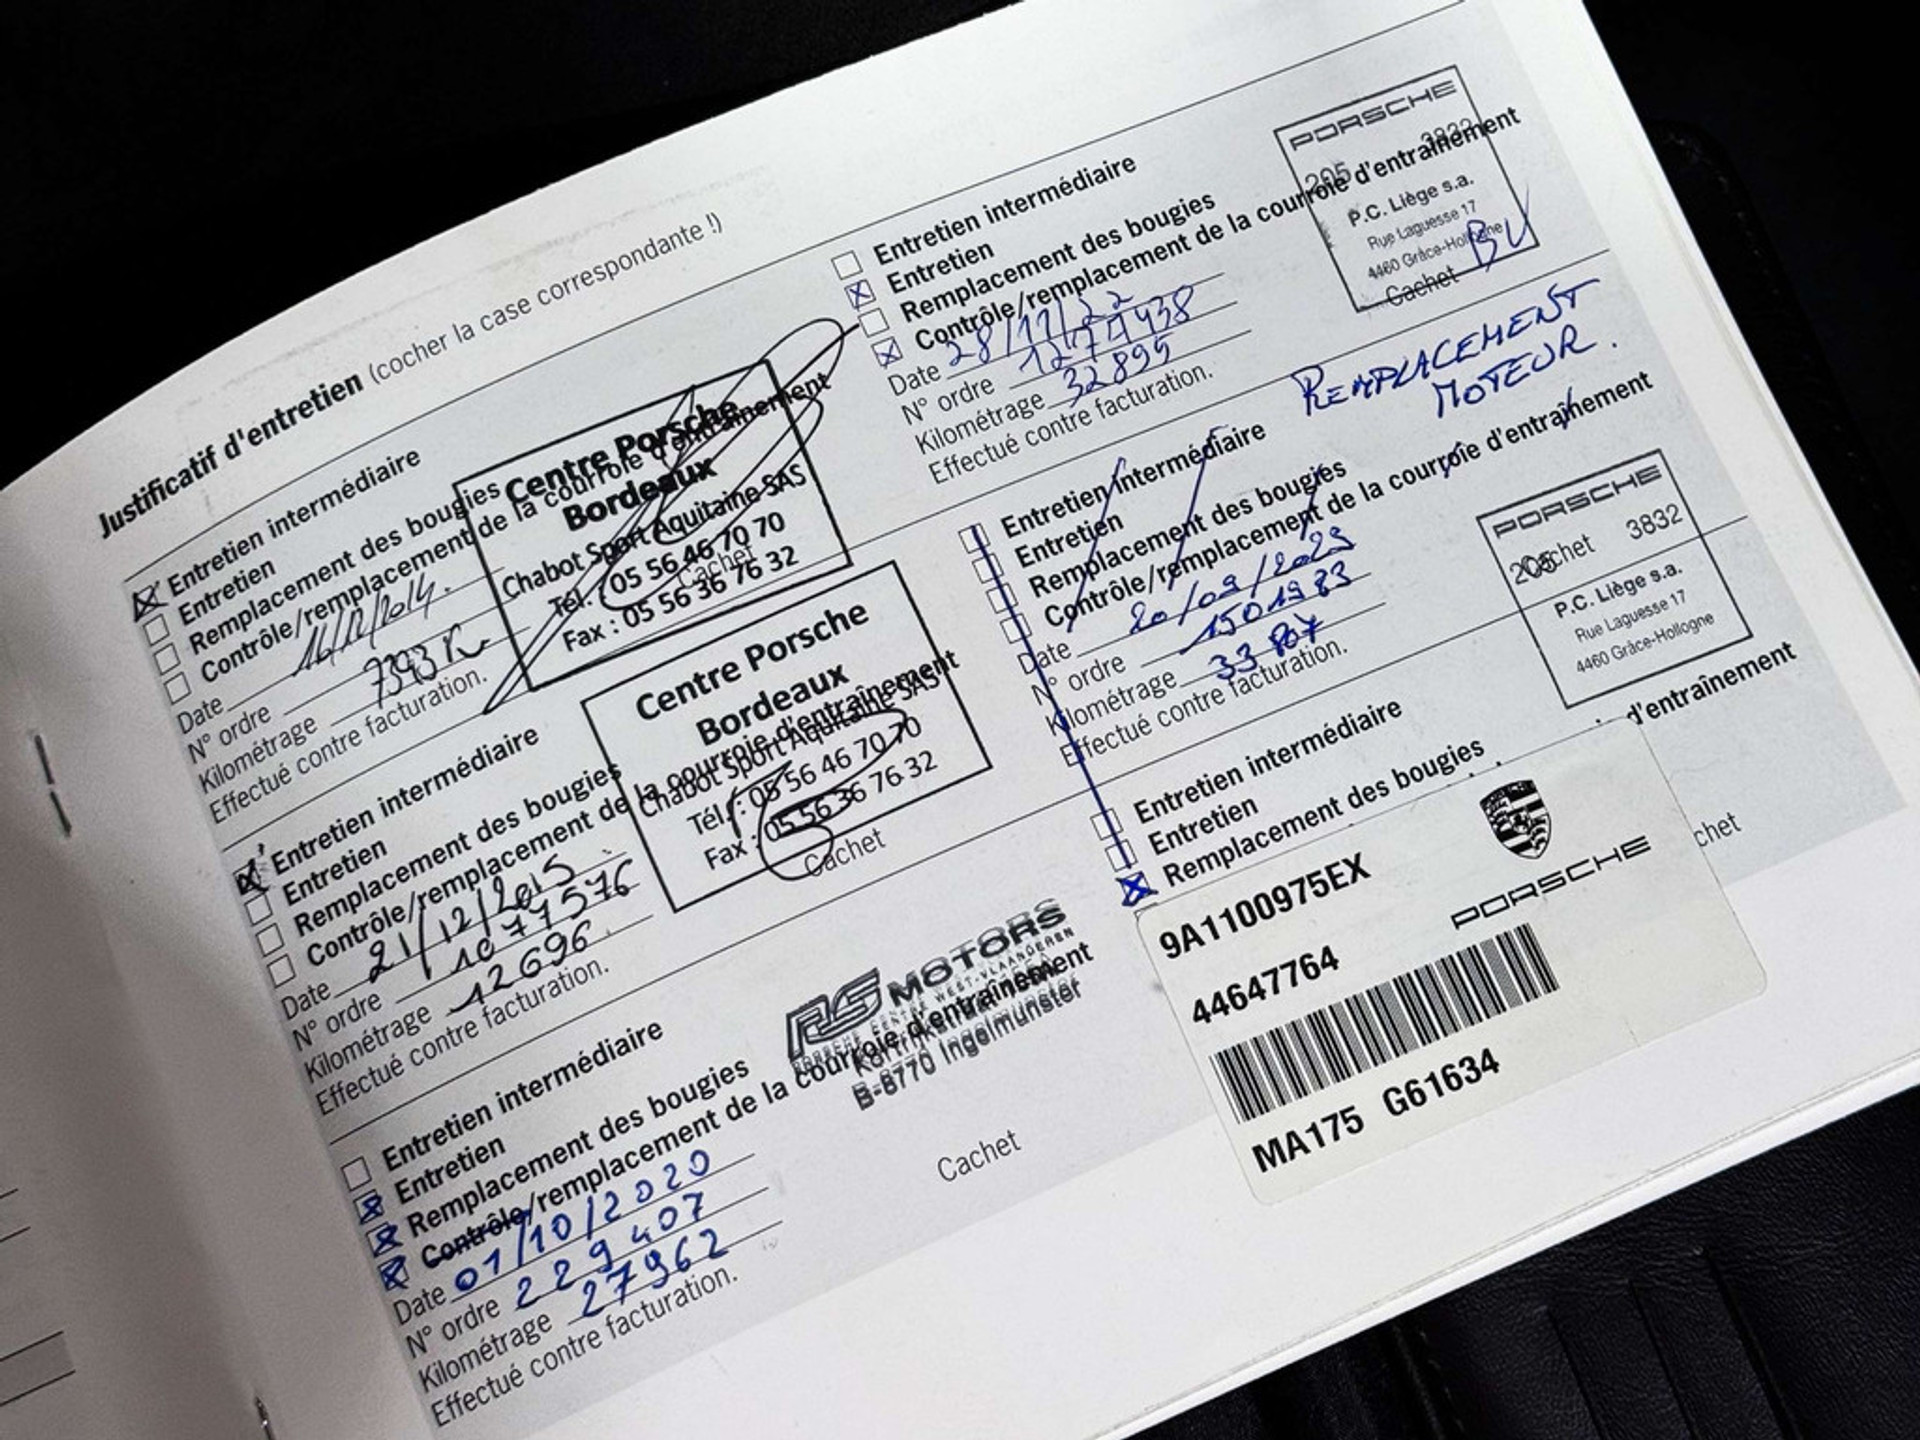 Justificatif d'entretien (cocher la case correspondante !)
Entretien intermédiaire
Entretien
Remplacement des bougies
Contrôle/remplacement de la courroie d'entraînement
Date 16/12/2014.
N° ordre
Kilométrage 7393 K
Effectué contre facturation.
Centre Porsche
Bordeaux
Chabot Sport Aquitaine SAS
Tél. : 05 56 46 70 70
Fax : 05 56 36 76 32
Cachet
Entretien intermédiaire
Entretien
Remplacement des bougies
Contrôle/remplacement de la courroie d'entraînement
Date 21/12/2015
N° ordre 1077576
Kilométrage 12696
Effectué contre facturation.
Centre Porsche
Bordeaux
Chabot Sport Aquitaine SAS
Tél. : 05 56 46 70 70
Fax : 05 56 36 76 32
Cachet
Entretien intermédiaire
Entretien
Remplacement des bougies
Contrôle/remplacement de la courroie d'entraînement
Date 01/10/2020
N° ordre 229407
Kilométrage 27962
Effectué contre facturation.
RS MOTORS
PORSCHE CENTRE WEST-VLAANDEREN
B-8770 Ingelmunster
Cachet
Entretien intermédiaire
Entretien
Remplacement des bougies
Contrôle/remplacement de la courroie d'entraînement
Date 28/11/22
N° ordre 1271438
Kilométrage 32895
Effectué contre facturation.
PORSCHE
205 3832
P.C. Liège s.a.
Rue Laguesse 17
4460 Grâce-Hollogne
Cachet
REMPLACEMENT
MOTEUR.
Entretien intermédiaire
Entretien
Remplacement des bougies
Contrôle/remplacement de la courroie d'entraînement
Date 20/09/2023
N° ordre 1501983
Kilométrage 33 807
Effectué contre facturation.
PORSCHE
205 3832
Cachet
P.C. Liège s.a.
Rue Laguesse 17
4460 Grâce-Hollogne
Entretien intermédiaire
Entretien
Remplacement des bougies
d'entraînement
chet
9A1100975EX
PORSCHE
44647764
MA175 G61634